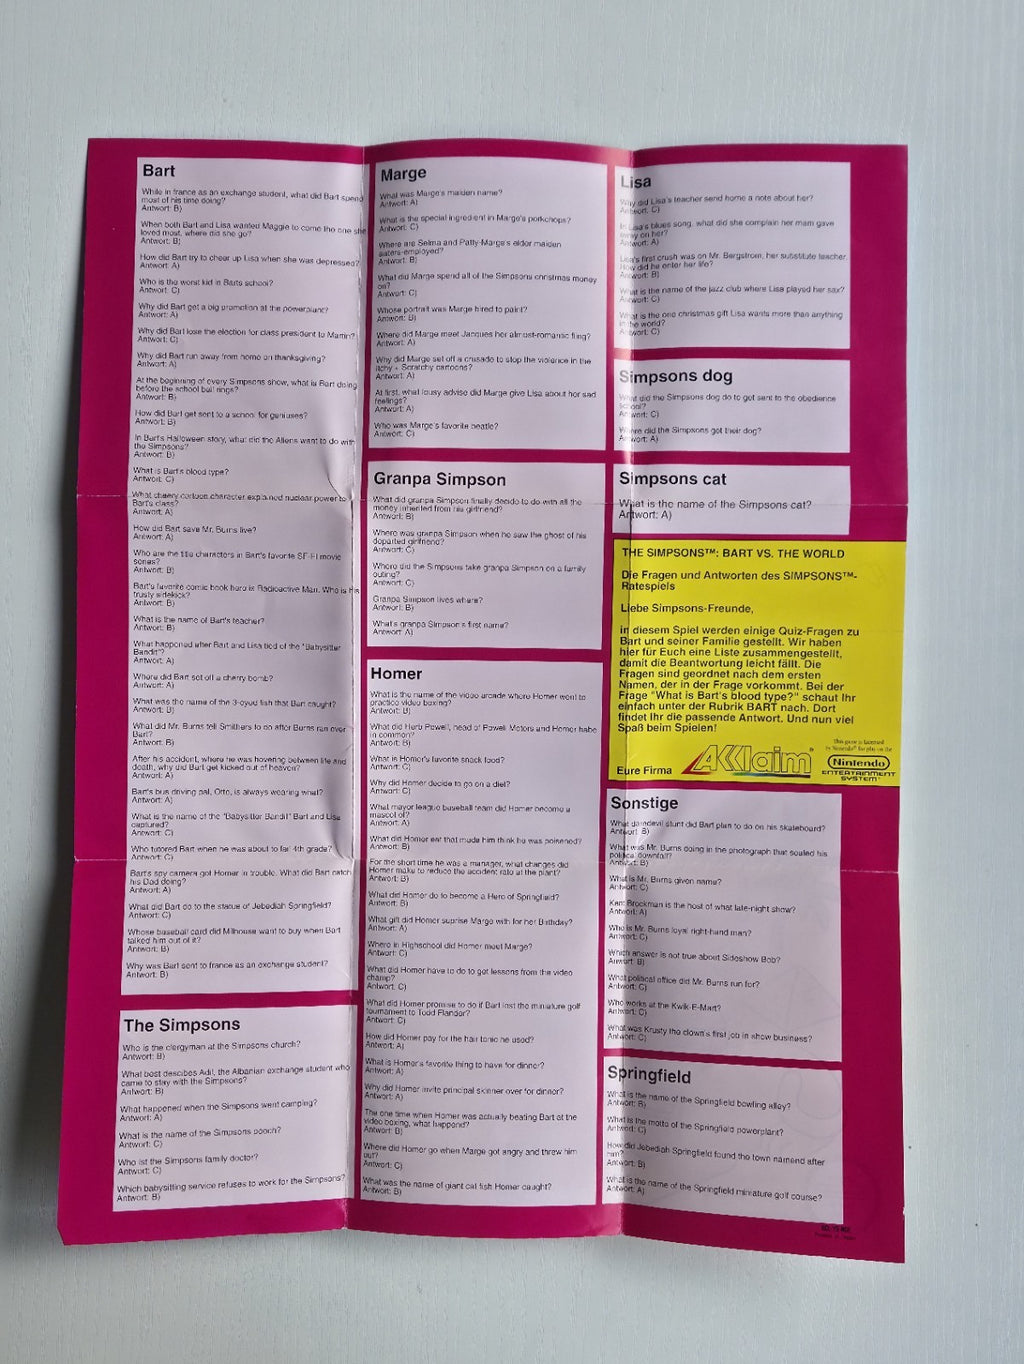 Bart
While in france as an exchange student, what did Bart spend
most of his time doing?
Antwort: B)
When both Bart and Lisa wanted Maggie to come the one she
loved most, where did she go?
Antwort: B)
How did Bart try to cheer up Lisa when she was depressed?
Antwort: A)
Who is the worst kid in Barts school?
Antwort: C)
Why did Bart get a big promotion at the powerplant?
Antwort: A)
Why did Bart lose the election for class president to Martin?
Antwort: C)
Why did Bart run away from home on thanksgiving?
Antwort: A)
At the beginning of every Simpsons show, what is Bart doing
before the school bell rings?
Antwort: B)
How did Bart get sent to a school for geniuses?
Antwort: B)
In Bart's Halloween story, what did the Aliens want to do with
the Simpsons?
Antwort: B)
What is Bart's blood type?
Antwort: C)
What cheery cartoon character explained nuclear power to
Bart's class?
Antwort: A)
How did Bart save Mr. Burns live?
Antwort: A)
Who are the title characters in Bart's favorite SF-FI movie
series?
Antwort: B)
Bart's favorite comic book hero is Radioactive Man. Who is his
trusty sidekick?
Antwort: B)
What is the name of Bart's teacher?
Antwort: B)
What happened after Bart and Lisa tied of the "Babysitter
Bandit"?
Antwort: A)
Where did Bart set off a cherry bomb?
Antwort: A)
What was the name of the 3-eyed fish that Bart caught?
Antwort: B)
What did Mr. Burns tell Smithers to do after Burns ran over
Bart?
Antwort: B)
After his accident, where he was hovering between life and
death, why did Bart get kicked out of heaven?
Antwort: A)
Bart's bus driving pal, Otto, is always wearing what?
Antwort: A)
What is the name of the "Babysitter Bandit" Bart and Lisa
captured?
Antwort: C)
Who tutored Bart when he was about to fail 4th grade?
Antwort: C)
Bart's spy camera got Homer in trouble. What did Bart catch
his Dad doing?
Antwort: A)
What did Bart do to the statue of Jebediah Springfield?
Antwort: C)
Whose baseball card did Milhouse want to buy when Bart
talked him out of it?
Antwort: B)
Why was Bart sent to france as an exchange student?
Antwort: B)
The Simpsons
Who is the clergyman at the Simpsons church?
Antwort: B)
What best descibes Adil, the Albanian exchange student who
came to stay with the Simpsons?
Antwort: B)
What happened when the Simpsons went camping?
Antwort: A)
What is the name of the Simpsons pooch?
Antwort: C)
Who ist the Simpsons family doctor?
Antwort: C)
Which babysitting service refuses to work for the Simpsons?
Antwort: B)
Marge
What was Marge's maiden name?
Antwort: A)
What is the special ingredient in Marge's porkchops?
Antwort: C)
Where are Selma and Patty-Marge's eldor maiden
sisters-employed?
Antwort: B)
What did Marge spend all of the Simpsons christmas money
on?
Antwort: C)
Whose portrait was Marge hired to paint?
Antwort: B)
Where did Marge meet Jacques her almost-romantic fling?
Antwort: A)
Why did Marge set off a crusade to stop the violence in the
Itchy + Scratchy cartoons?
Antwort: A)
At first, what lousy advise did Marge give Lisa about her sad
feelings?
Antwort: A)
Who was Marge's favorite beatle?
Antwort: C)
Granpa Simpson
What did granpa Simpson finally decide to do with all the
money inherited from his girlfriend?
Antwort: B)
Where was granpa Simpson when he saw the ghost of his
departed girlfriend?
Antwort: C)
Where did the Simpsons take granpa Simpson on a family
outing?
Antwort: C)
Granpa Simpson lives where?
Antwort: B)
What's granpa Simpson's first name?
Antwort: A)
Homer
What is the name of the video arcade where Homer went to
practice video boxing?
Antwort: B)
What did Herb Powell, head of Powell Motors and Homer habe
in common?
Antwort: B)
What is Homer's favorite snack food?
Antwort: C)
Why did Homer decide to go on a diet?
Antwort: C)
What mayor league baseball team did Homer become a
mascot of?
Antwort: A)
What did Homer eat that made him think he was poisened?
Antwort: B)
For the short time he was a manager, what changes did
Homer make to reduce the accident rate at the plant?
Antwort: B)
What did Homer do to become a Hero of Springfield?
Antwort: B)
What gift did Homer suprise Marge with for her Birthday?
Antwort: A)
Where in Highschool did Homer meet Marge?
Antwort: C)
What did Homer have to do to get lessons from the video
champ?
Antwort: C)
What did Homer promise to do if Bart lost the miniature golf
tournament to Todd Flander?
Antwort: C)
How did Homer pay for the hair tonic he used?
Antwort: A)
What is Homer's favorite thing to have for dinner?
Antwort: A)
Why did Homer invite principal skinner over for dinner?
Antwort: A)
The one time when Homer was actually beating Bart at the
video boxing, what happend?
Antwort: B)
Where did Homer go when Marge got angry and threw him
out?
Antwort: C)
What was the name of giant cat fish Homer caught?
Antwort: B)
Lisa
Why did Lisa's teacher send home a note about her?
Antwort: C)
In Lisa's blues song, what did she complain her mam gave
away on her?
Antwort: A)
Lisa's first crush was on Mr. Bergstrom, her substitute teacher.
How did he enter her life?
Antwort: B)
What is the name of the jazz club where Lisa played her sax?
Antwort: C)
What is the one christmas gift Lisa wants more than anything
in the world?
Antwort: C)
Simpsons dog
What did the Simpsons dog do to get sent to the obedience
school?
Antwort: C)
Where did the Simpsons got their dog?
Antwort: A)
Simpsons cat
What is the name of the Simpsons cat?
Antwort: A)
THE SIMPSONS™: BART VS. THE WORLD
Die Fragen und Antworten des SIMPSONS™-
Ratespiels
Liebe Simpsons-Freunde,
in diesem Spiel werden einige Quiz-Fragen zu
Bart und seiner Familie gestellt. Wir haben
hier für Euch eine Liste zusammengestellt,
damit die Beantwortung leicht fällt. Die
Fragen sind geordnet nach dem ersten
Namen, der in der Frage vorkommt. Bei der
Frage "What is Bart's blood type?" schaut Ihr
einfach unter der Rubrik BART nach. Dort
findet Ihr die passende Antwort. Und nun viel
Spaß beim Spielen!
Eure Firma
AKKlaim®
This game is licensed
by Nintendo® for play on the
Nintendo
ENTERTAINMENT
SYSTEM®
Sonstige
What daredevil stunt did Bart plan to do on his skateboard?
Antwort: B)
What was Mr. Burns doing in the photograph that souled his
political downfall?
Antwort: B)
What is Mr. Burns given name?
Antwort: C)
Kent Brockman is the host of what late-night show?
Antwort: A)
Who is Mr. Burns loyal right-hand man?
Antwort: C)
Which answer is not true about Sideshow Bob?
Antwort: B)
What political office did Mr. Burns run for?
Antwort: C)
Who works at the Kwik-E-Mart?
Antwort: C)
What was Krusty the clown's first job in show business?
Antwort: C)
Springfield
What is the name of the Springfield bowling alley?
Antwort: B)
What is the motto of the Springfield powerplant?
Antwort: C)
How did Jebediah Springfield found the town namend after
him?
Antwort: B)
What is the name of the Springfield miniature golf course?
Antwort: A)